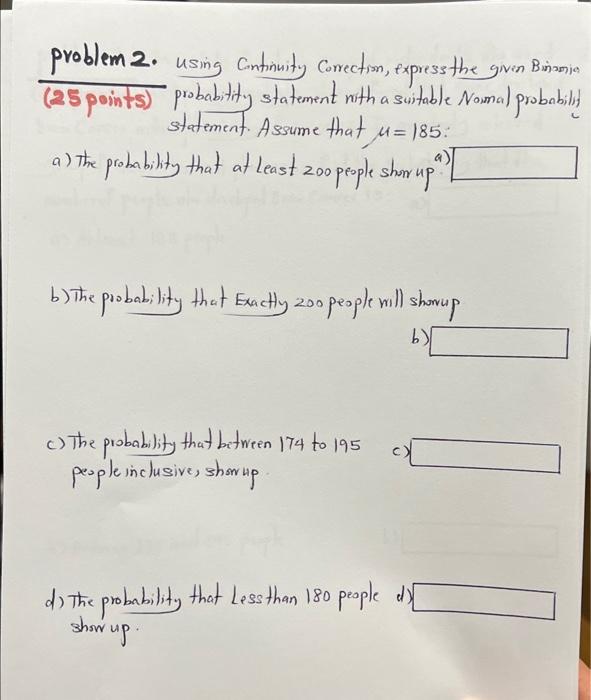 problem 2. using Continuity Correction, express the given Binomia
(25 points) probability statement with a suitable Normal probability
statement. Assume that μ = 185:
a) The probability that at Least 200 people show up. a)
b) The probability that Exactly 200 people will showup
b)
c) The probability that between 174 to 195 c)
people inclusive, show up.
d) The probability that Less than 180 people d)
show up.